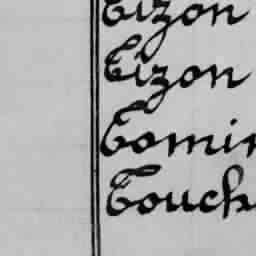 Tizon
Tizon
Tomin
Touch